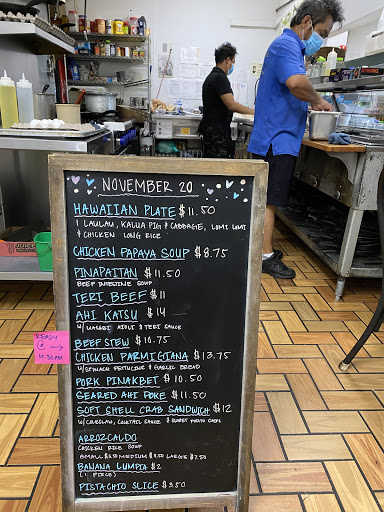 NOVEMBER 20
HAWAIIAN PLATE $11.50
1 LAULAU, KALUA PIG & CABBAGE, LOMI LOMI
& CHICKEN LONG RICE
CHICKEN PAPAYA SOUP $8.75
PINAPAITAN $11.50
BEEF INTESTINE SOUP
TERI BEEF $11
AHI KATSU $14
W/ WASABI AIOLI & TERI SAUCE
READY
@ →
10:30AM
BEEF STEW $10.75
CHICKEN PARMIGIANA $13.75
W/SPINACH FETTUCINE & GARLIC BREAD
PORK PINAKBET $10.50
SEARED AHI POKE $11.50
SOFT SHELL CRAB SANDWICH $12
W/COLESLAW, COCKTAIL SAUCE & SWEET POTATO CHIPS
ARROZCALDO
CHICKEN RICE SOUP
SMALL MEDIUM LARGE $7.50
BANANA LUMPIA $2
(1 PIECE)
PISTACHIO SLICE $3.50